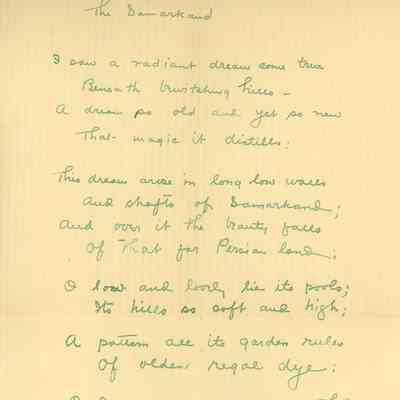 The Samarkand
I saw a radiant dream come true
Beneath bewitching hills –
A dream so old and yet so new
That magic it distills:
This dream arose in long low walls
And shafts of Samarkand;
And over it the beauty falls
Of that far Persian land;
O low and lovely lie its pools;
Its hills so soft and high;
A pattern all its garden rules
Of olden regal dye;